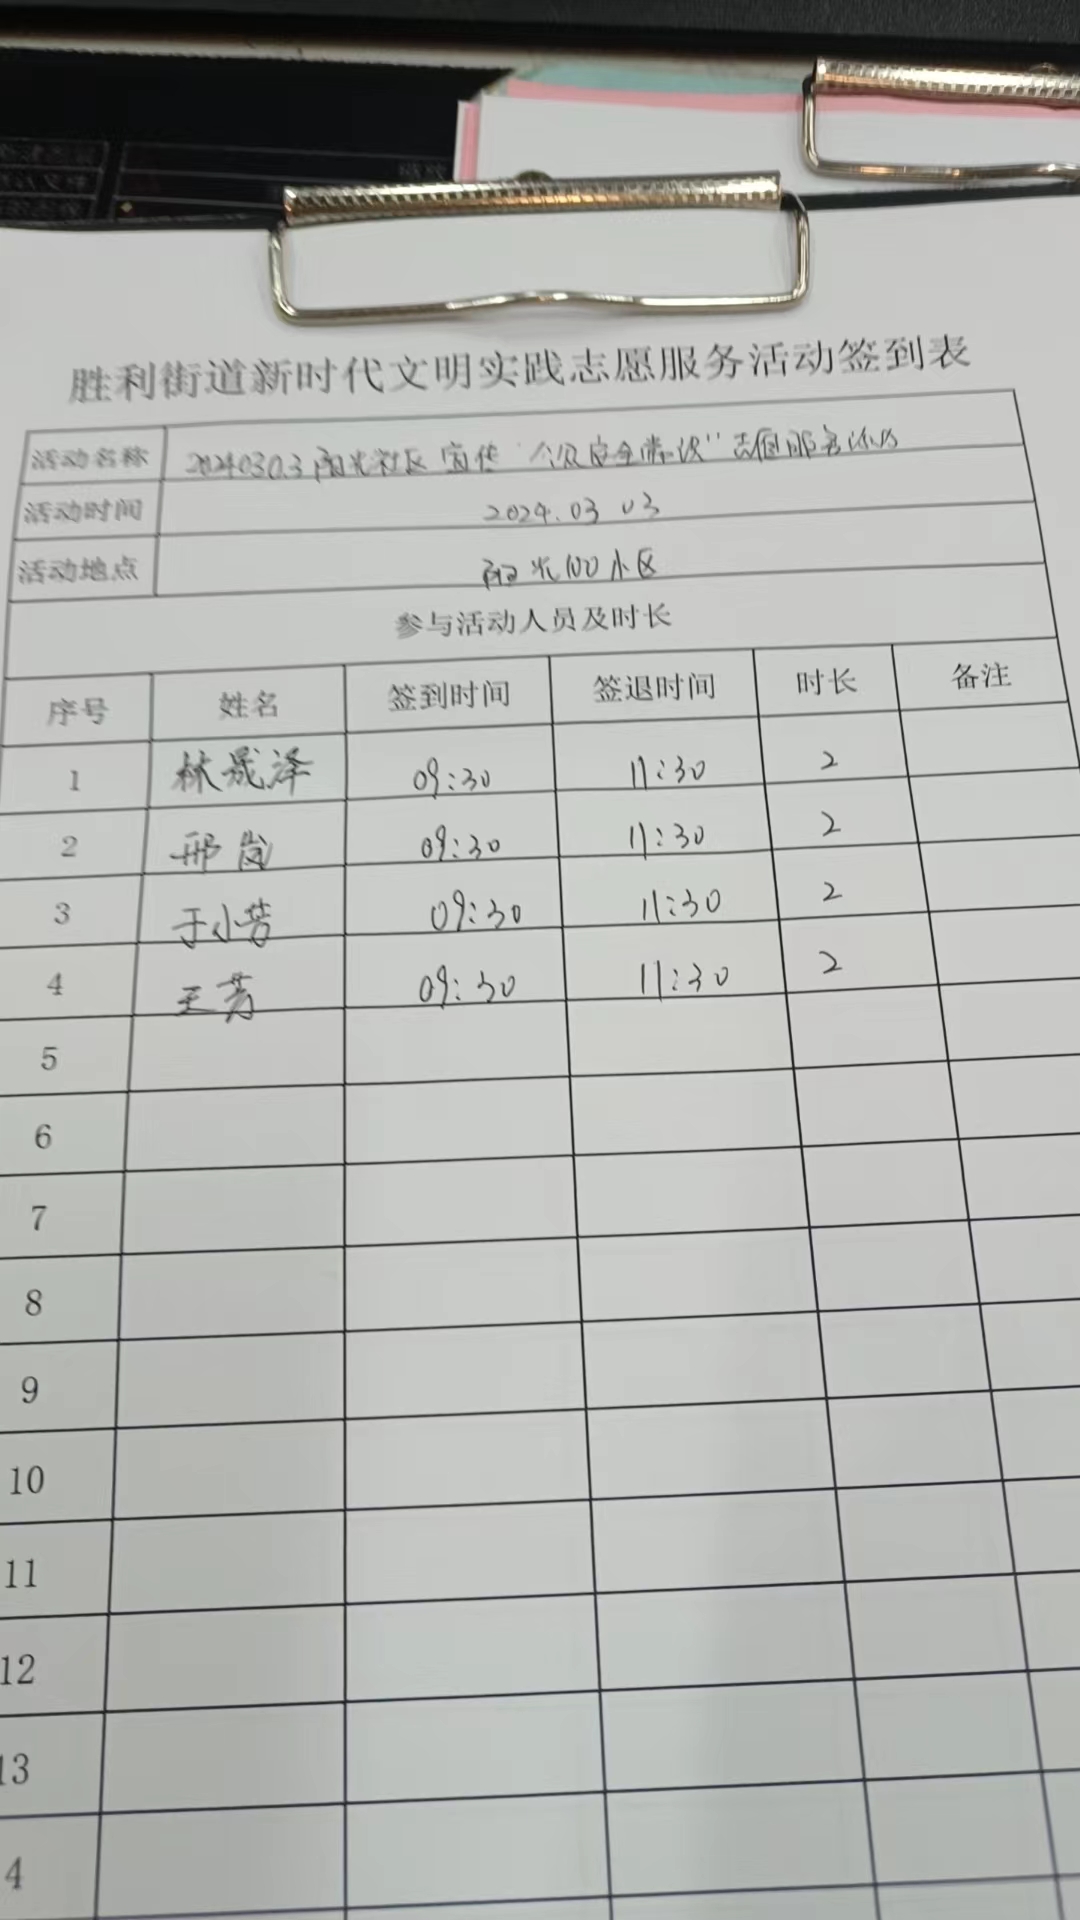 胜利街道新时代文明实践志愿服务活动签到表
活动名称 20240303阳光社区宣传"个人安全常识"志愿服务活动
活动时间 2024.03 03
活动地点 阳光100小区
参与活动人员及时长
序号 姓名 签到时间 签退时间 时长 备注
1 林晟泽 09:30 11:30 2
2 邢岚 09:30 11:30 2
3 于小芳 09:30 11:30 2
4 王芳 09:30 11:30 2
5
6
7
8
9
10
11
12
13
4